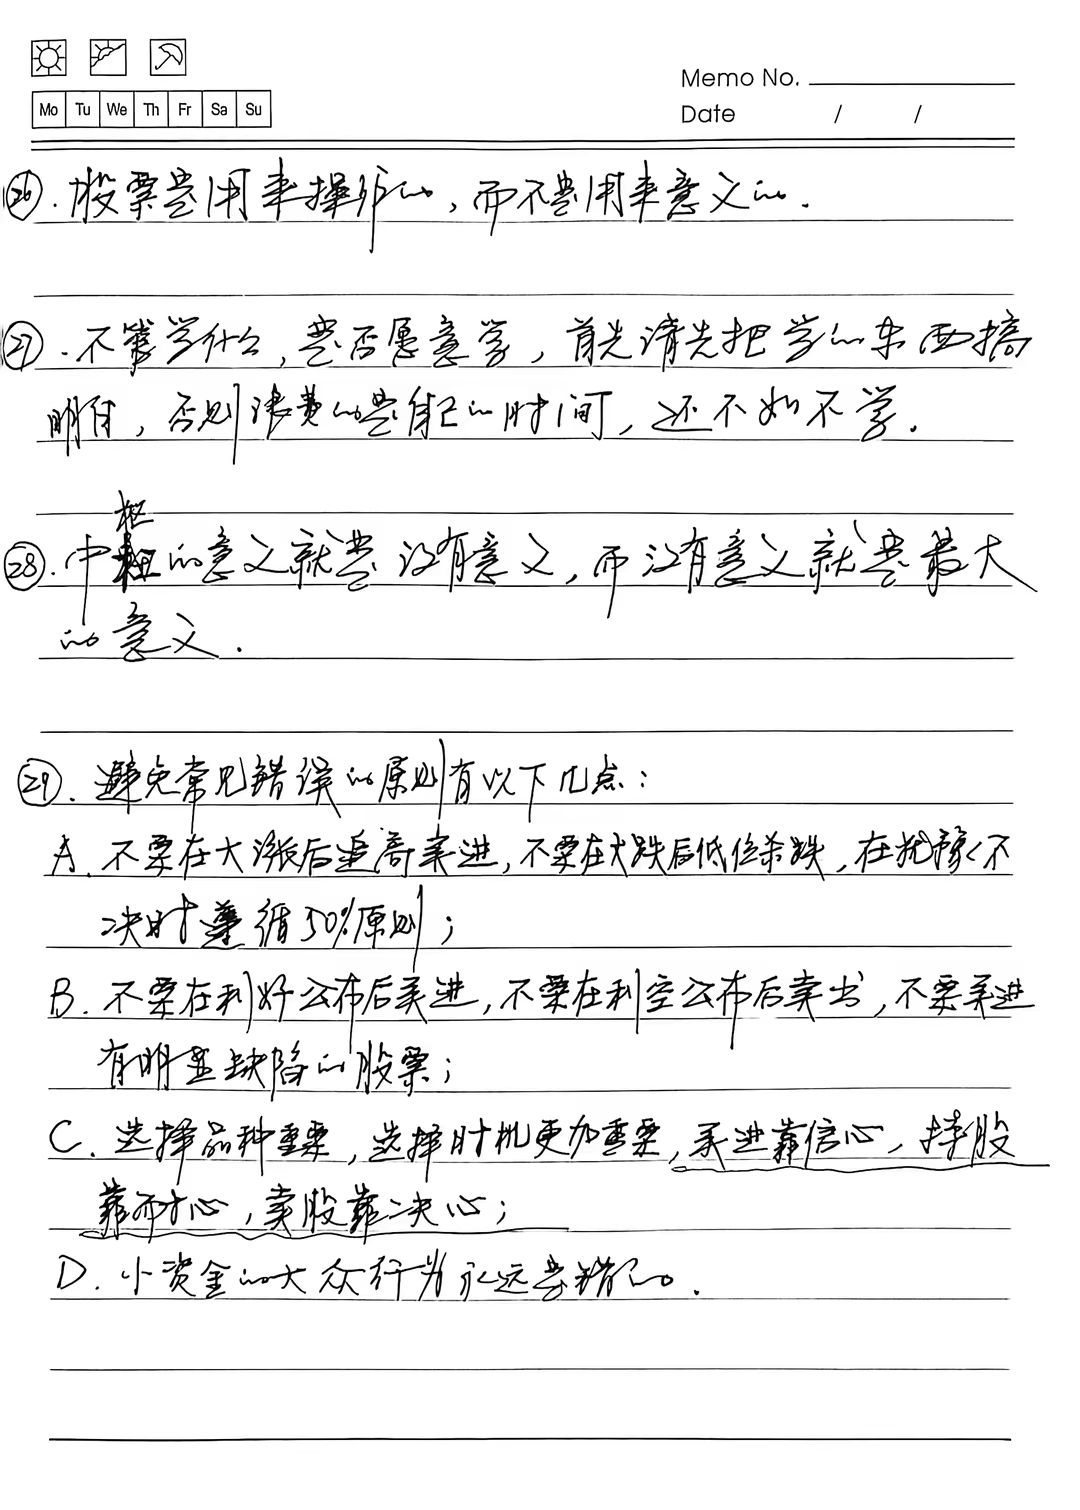 Memo No.
Mo Tu We Th Fr Sa Su
Date / /
㉖. 股票是用来操作的, 而不是用来意义的.
㉗. 不管学什么, 是否愿意学, 首先请先把学的东西搞
明白, 否则浪费的是自己的时间, 还不如不学.
枢
㉘. 中枢的意义就是没有意义, 而没有意义就是最大
的意义.
㉙. 避免常见错误的原则有以下几点:
A. 不要在大涨后追高买进, 不要在大跌后低位杀跌, 在犹豫不
决时遵循50%原则;
B. 不要在利好公布后买进, 不要在利空公布后卖出, 不要买进
有明显缺陷的股票;
C. 选择品种重要, 选择时机更加重要, 买进靠信心, 持股
靠耐心, 卖股靠决心;
D. 小资金的大众行为永远是错的.